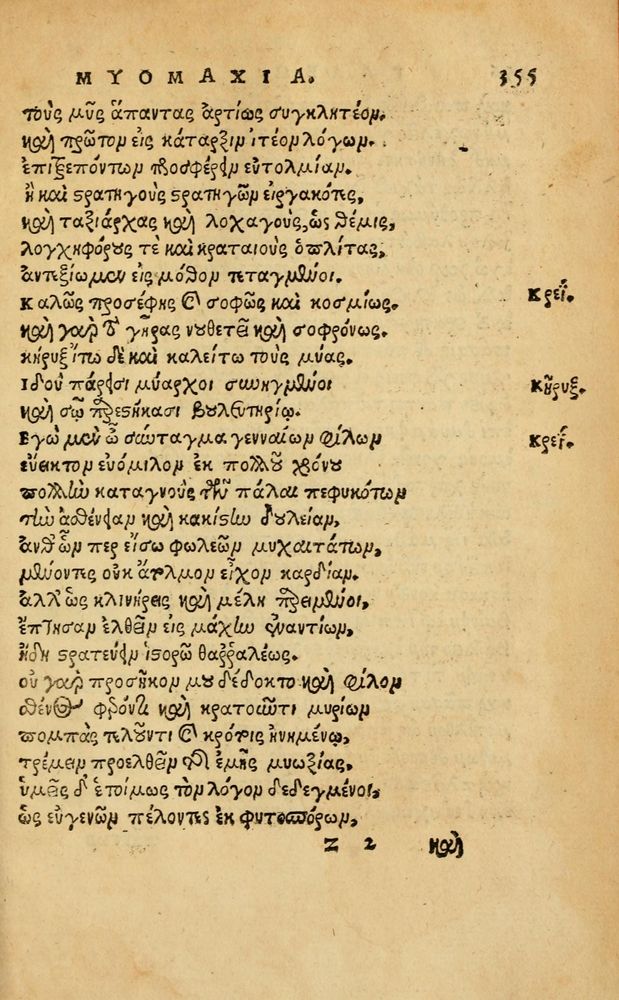 ΜΥΟΜΑΧΙΑ. 355
τοὺς μῦς ἅπαντας ἀρτίως συγκλητέον.
καὶ πρῶτον εἰς κάταρξιν ἰτέον λόγων.
ἐπιῤῥεπόντων προσφέρειν εὐτολμίαν.
ἢ καὶ στρατηγοὺς στρατηγῶν εἰργακότες,
καὶ ταξιάρχας καὶ λοχαγοὺς, ὡς θέμις,
λογχηφόρους τὲ καὶ κραταιοὺς ὁπλίτας,
ἀντεξίωμεν εἰς μόθον τεταγμένοι.
Καλῶς προσέφης καὶ σοφῶς καὶ κοσμίως. Κρεΐ.
καὶ γὰρ τὸ γῆρας νουθετεῖ καὶ σοφρόνως.
κήρυξ ἴτω δὲ καὶ καλείτω τοὺς μύας.
Ἰδοὺ πάρεισι μύαρχοι συνηγμένοι Κῆρυξ.
καὶ σῷ πρεστήκασι βουλευτηρίῳ.
Ἐγὼ μὲν ὦ σύνταγμα γενναίων φίλων Κρεΐ.
εὔεικτον εὐόμιλον ἐκ πολλοῦ χρόνου
πολλὴν καταγνοὺς τὴν πάλαι πεφυκότων
τὴν ἀσθένειαν καὶ κακίστην δουλείαν,
ἀνθ' ὧν περ εἴσω φωλεῶν μυχαιτάτων,
μένοντες οὐκ ἄτλμον εἶχον καρδίαν.
ἀλλ' ὡς κλινήρεις καὶ μέλη πρειμένοι,
ἔπτησαν ἐλθεῖν εἰς μάχην ἐναντίων,
ἤδη στρατεύειν ἱστορῶ θαῤῥαλέως.
οὐ γὰρ προσῆκον μου δέδοκτο καὶ φίλον
σθένος φρόντι καὶ κρατοῦντι μυρίων
πομπὰς τελοῦντι καὶ κρότοις ἡνημένῳ,
τρέμειν προελθεῖν ἐμῆς μυωξίας.
ὑμεῖς δ' ἑτοίμως τὸν λόγον δεδεγμένοι,
ὡς εὐγενῶν πέλοντες ἐκ φυτοσπόρων,
Z 2 καὶ